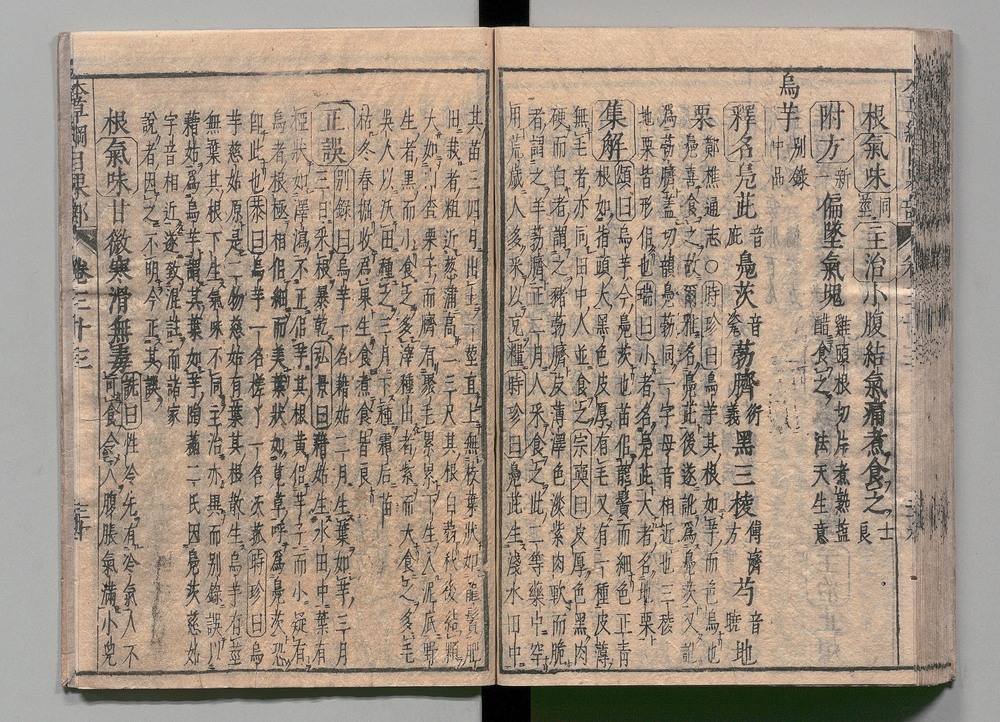 根氣味同莖主治小腹結氣痛煮食之士良
附方新一偏墜氣塊雞頭根切片煮熟鹽醋食之法天生意
烏芋別錄中品
釋名鳧茈音疵鳧茨音瓷荸臍衍義黑三棱博濟方芍音曉地
栗鄭樵通志○時珍曰烏芋其根如芋而色烏也
鳧喜食之故爾雅名鳧茈後遂訛為鳧茨又訛
為荸臍蓋切韻鳧荸同一字母音相近也三稜
地栗皆形似也瑞曰小者名鳧茈大者名地栗
集解頌曰烏芋今鳧茨也苗似龍鬚而細色正青
根如指頭大黑色皮厚有毛又有一種皮薄
無毛者亦同田中人並食之宗奭曰皮厚色黑肉
硬而白者謂之豬荸臍皮薄澤色淡紫肉軟而脆
者謂之羊荸臍正二月人采食之此二等藥中罕
用荒歲人多采以充糧時珍曰鳧茈生淺水田中
其苗三四月出土一莖直上無枝葉狀如龍鬚肥
田栽者粗近蔥蒲高二三尺其根白蒻秋後結顆
大如山查栗子而臍有聚毛累累下生入泥底野
生者黑而小食之多滓種出者紫而大食之多毛
吳人以沃田種之三月下種霜後苗
枯冬春掘收為果生食煮食皆良
正誤別錄曰烏芋一名藉姑二月生葉如芋三月
三日采根暴乾弘景曰藉姑生水田中葉有
椏狀如澤瀉不正似芋其根黃似芋子而小疑有
烏者根極相似細而美葉狀如莧草呼為鳧茨恐
即此也恭曰烏芋一名槎丫一名茨菰時珍曰烏
芋慈姑原是二物慈姑有葉其根散生烏芋有莖
無葉其根下生氣味不同主治亦異而別錄誤以
藉姑為烏芋謂其葉如芋陶蘇二氏因鳧茨慈姑
字音相近遂致混註而諸家
說者因之不明今正其誤
根氣味甘微寒滑無毒詵曰性冷先有冷氣人不
可食令人腹脹氣滿小兒